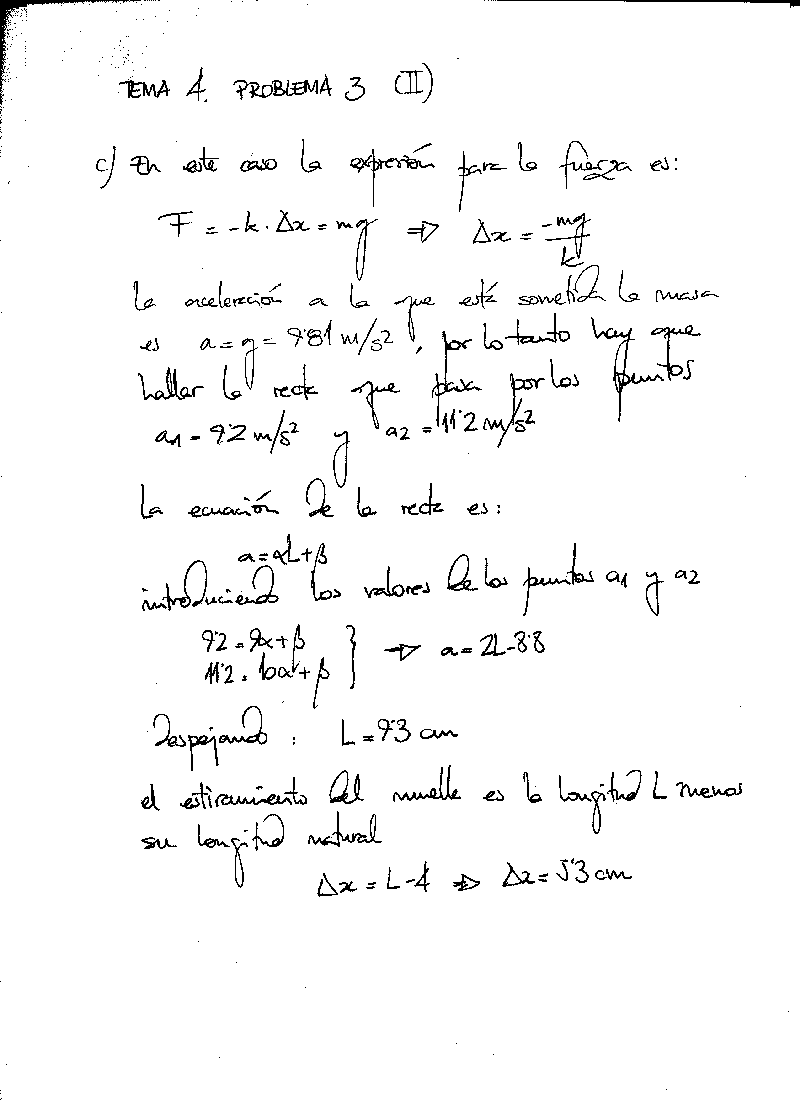 TEMA 4. PROBLEMA 3 (II)
c) En este caso la expresión para la fuerza es:
F = -k · Δx = mg ⇒ Δx = -mg/k
La aceleración a la que está sometida la masa
es a = g = 9'81 m/s², por lo tanto hay que
hallar la recta que pasa por los puntos
a1 = 9'2 m/s² y a2 = 11'2 m/s²
La ecuación de la recta es:
a = αL + β
introduciendo los valores de los puntos a1 y a2
9'2 = 9α + β } → a = 2L - 8'8
11'2 = 10α + β
Despejando : L = 9'3 cm
el estiramiento del muelle es la longitud L menos
su longitud natural
Δx = L - 4 ⇒ Δx = 5'3 cm